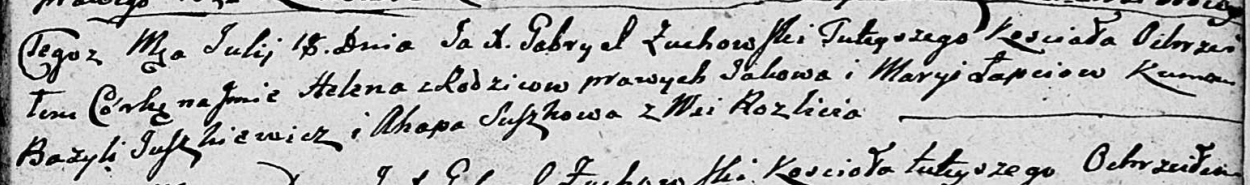 Tegoz Mca Julij 18. Dnia Ja X. Gabryel Zuchowski Tuteyszego Kosciała Ochrzci
łem Córkę na Jmie Helena z Rodzicow prawych Jakowa i Maryi Łapciow Kumowi
Bazyli Juszkiewicz i Ahapa Suszkowa z Wsi Rozlicia
Zuchowski Koscioła tuteyszego Ochrzciłem